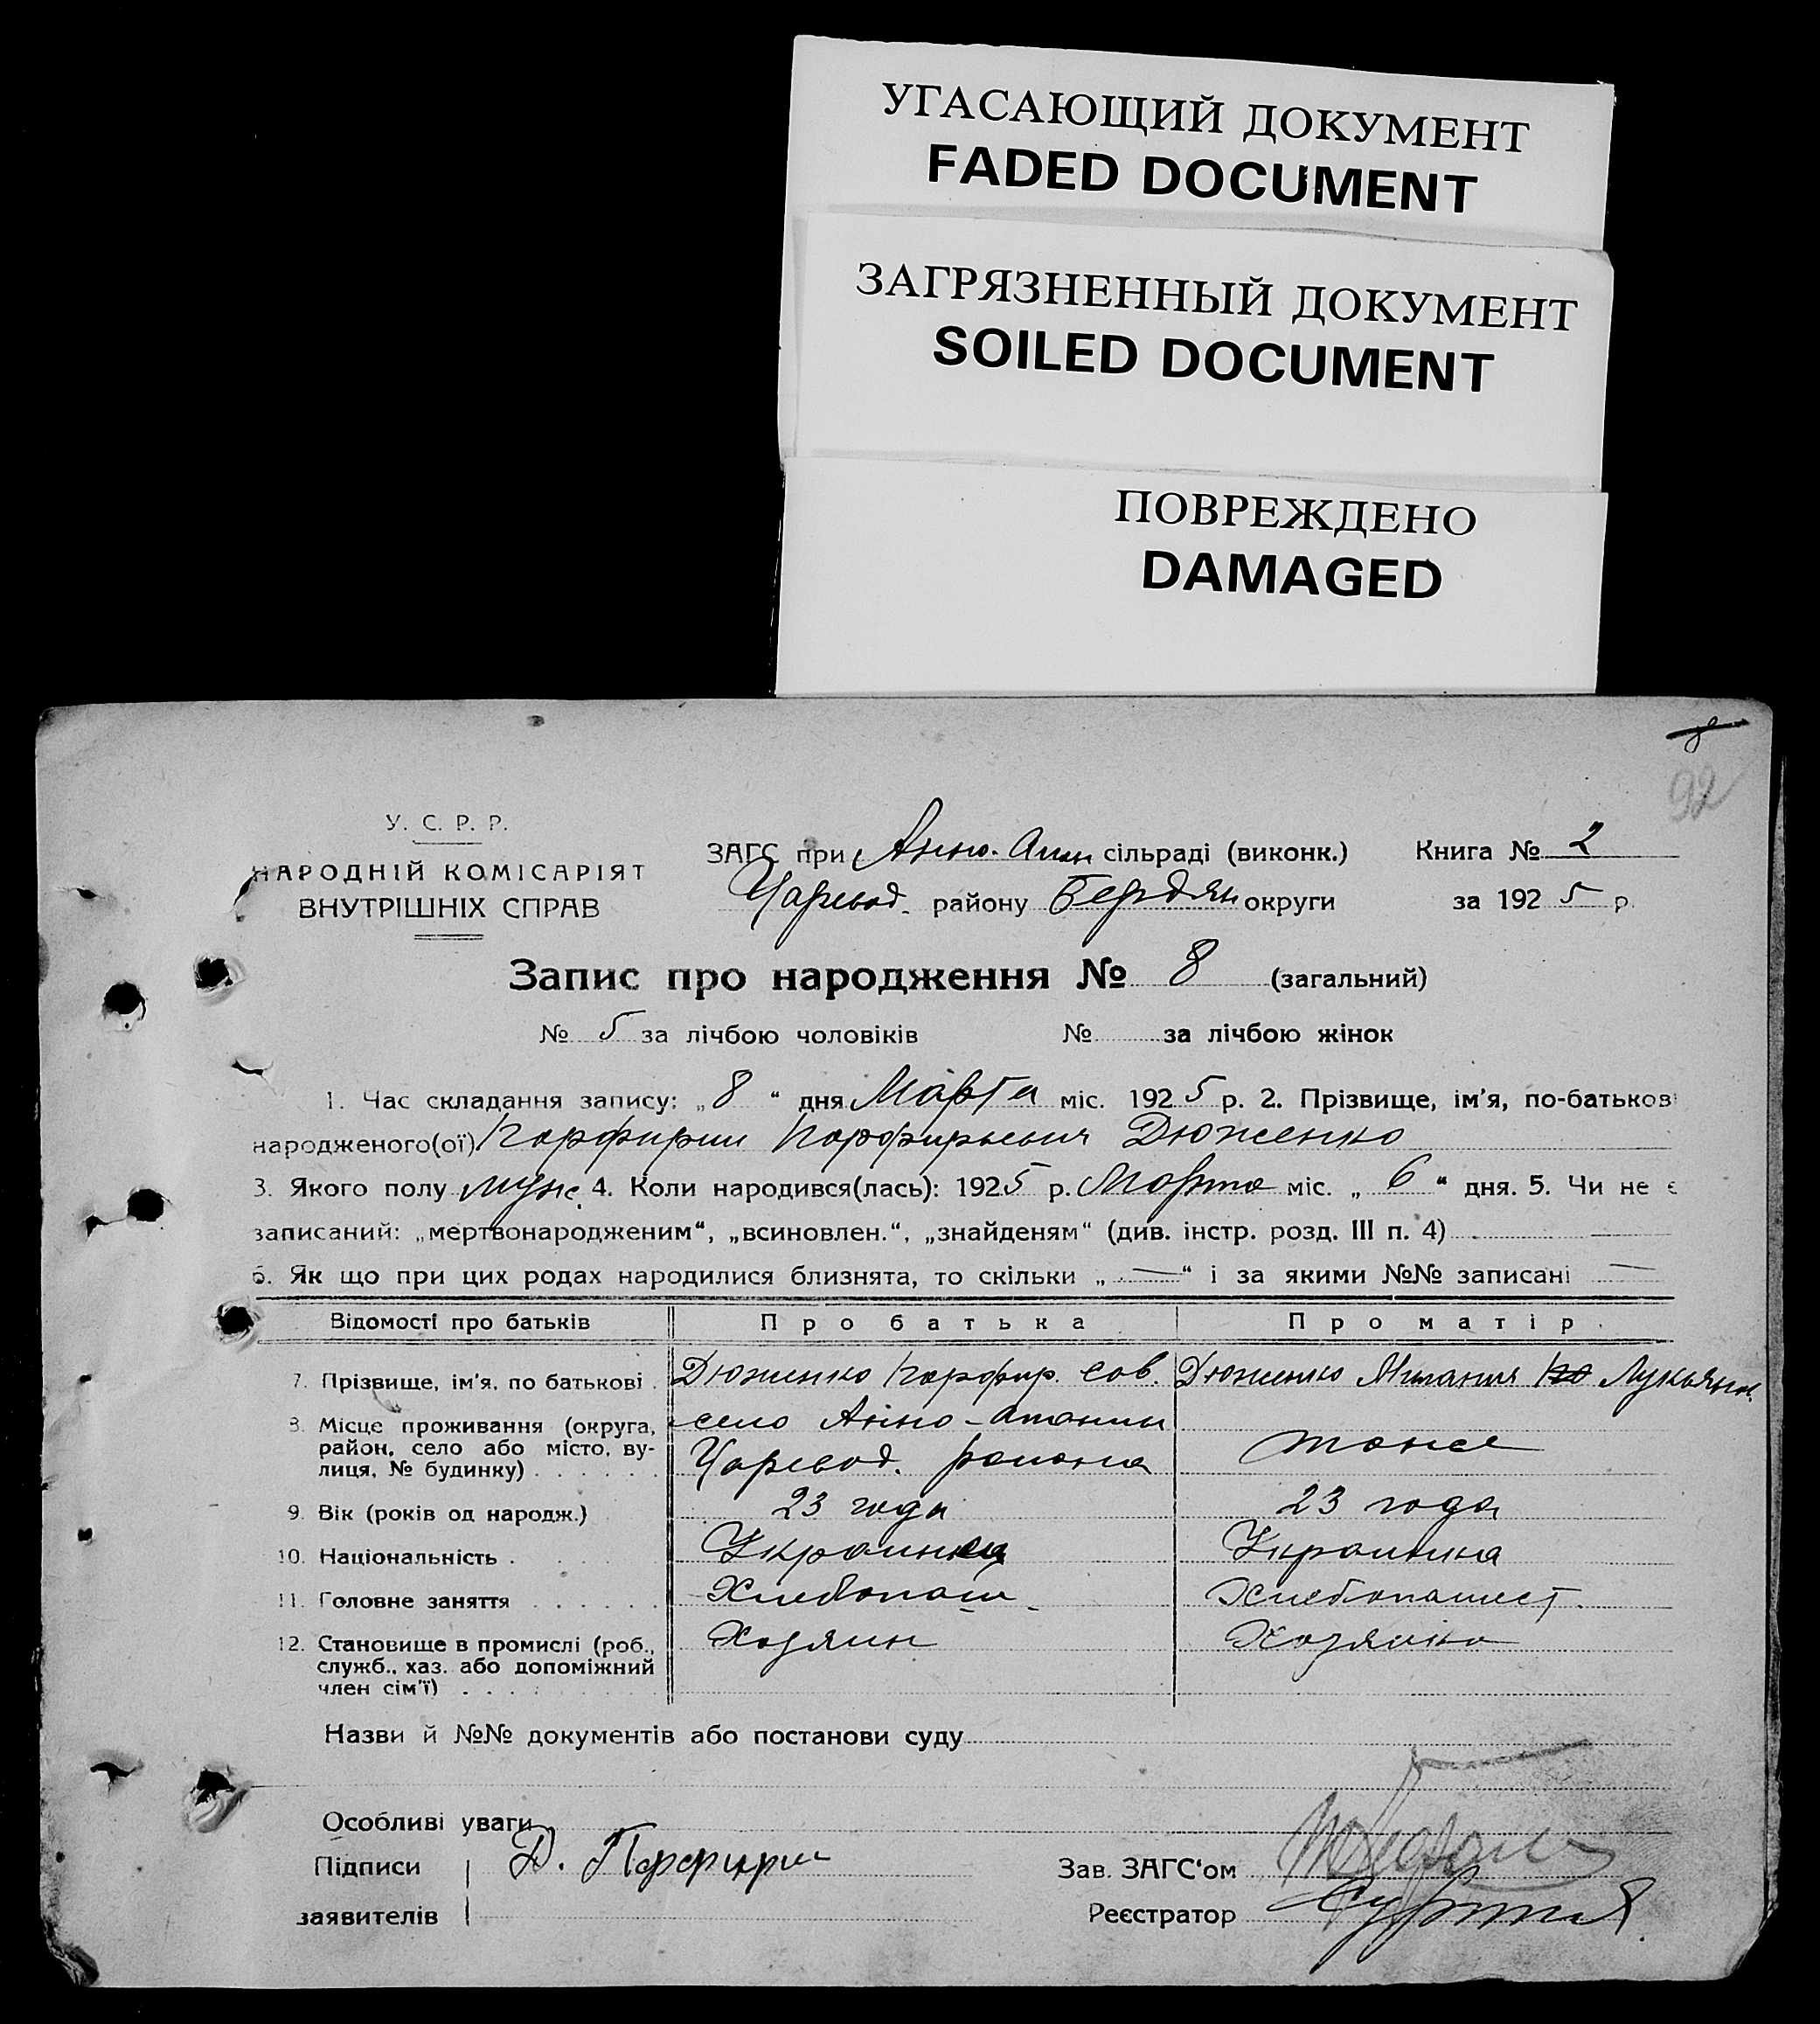 УГАСАЮЩИЙ ДОКУМЕНТ
FADED DOCUMENT
ЗАГРЯЗНЕННЫЙ ДОКУМЕНТ
SOILED DOCUMENT
ПОВРЕЖДЕНО
DAMAGED
8
92
У. С. Р. Р.
НАРОДНІЙ КОМІСАРІЯТ
ВНУТРІШНІХ СПРАВ
ЗАГС при Анно- сільраді (виконк.) Книга № 2
Царевод. району Бердян округи за 1925 р.
Запис про народження № 8 (загальний)
№ 5 за лічбою чоловіків № за лічбою жінок
1. Час складання запису: „8“ дня Марта міс. 1925 р. 2. Прізвище, ім'я, по-батькові
народженого(ої) Порфирий Порфирьевич Дюженко
3. Якого полу муж. 4. Коли народився(лась): 1925 р. Марта міс. „6“ дня. 5. Чи не є
записаний: „мертвонародженим“, „всиновлен.“, „знайденям“ (див. інстр. розд. III п. 4) —
6. Як що при цих родах народилися близнята, то скільки „—“ і за якими №№ записані —
Відомості про батьків Про батька Про матір.
7. Прізвище, ім'я, по батькові . Дюженко Порфир. Сав. Дюженко Милания Лукьян.
8. Місце проживання (округа, район, село або місто, вулиця, № будинку) . . . . . . село Анно- Царевод. района тоже
9. Вік (років од народж.) 23 года 23 года
10. Національність . Украинец Украинка
11. Головне заняття . . . . . . Хлебопаш. Хлебопашест.
12. Становище в промислі (роб., служб., хаз. або допоміжний член сім'ї) . . . . Хозяин Хозяйка
Назви й №№ документів або постанови суду
Особливі уваги
Підписи Д. Порфирий Зав. ЗАГС'ом
заявителів Реєстратор